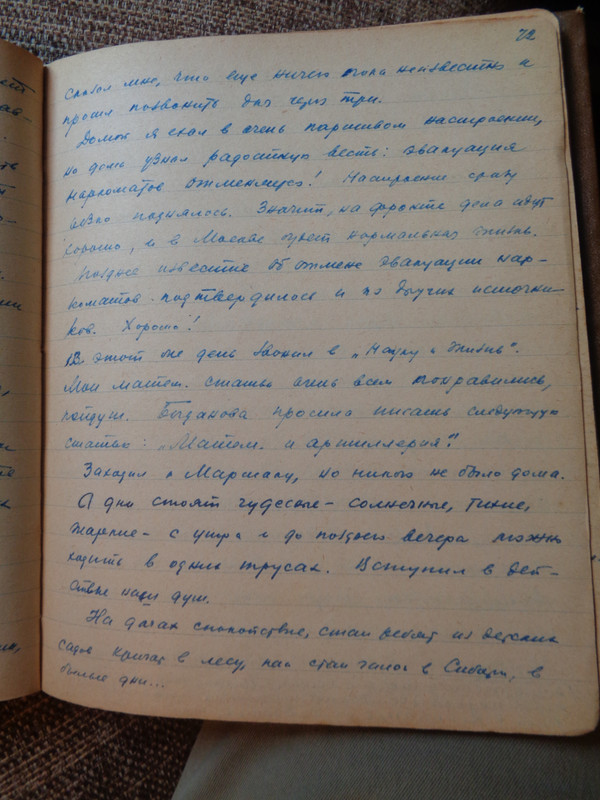 72
сказал мне, что еще ничего пока неизвестно и
просил позвонить дня через три.
Домой я ехал в очень паршивом настроении,
но дома узнал радостную весть: эвакуация
наркоматов отменяется! Настроение сразу
резко поднялось. Значит, на фронте дела идут
хорошо, и в Москве будет нормальная жизнь.
Позднее известие об отмене эвакуации нар-
коматов подтвердилось и из других источни-
ков. Хорошо!
В этот же день звонил в „Науку и жизнь".
Мои матем. статьи очень всем понравились,
пойдут. Богданова просила писать следующую
статью: „Матем. и артиллерия".
Заходил к Маршаку, но никого не было дома.
А дни стоят чудесные – солнечные, тихие,
жаркие – с утра и до позднего вечера можно
ходить в одних трусах. Вступил в дей-
ствие наш душ.
На дачах спокойствие, стаи ребят из детских
садов кричат в лесу, как стаи галок в Сибири, в
былые дни...